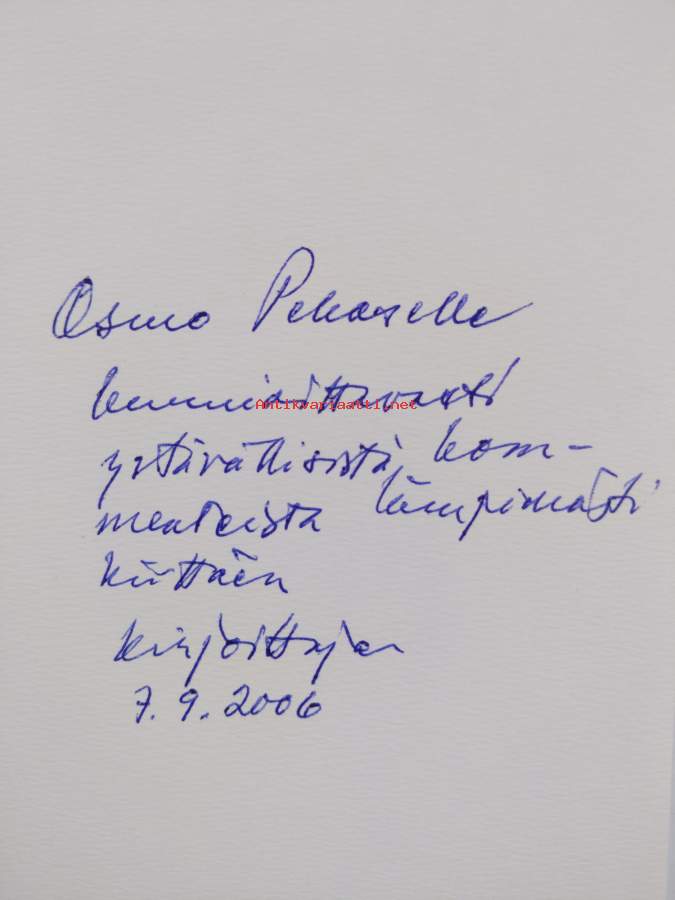 Osmo Pekoselle
kunnioittavasti
Antikvariaatti.net
ystävällisistä kom-
menteista lämpimästi
kiittäen
kirjoittaja
7.9.2006